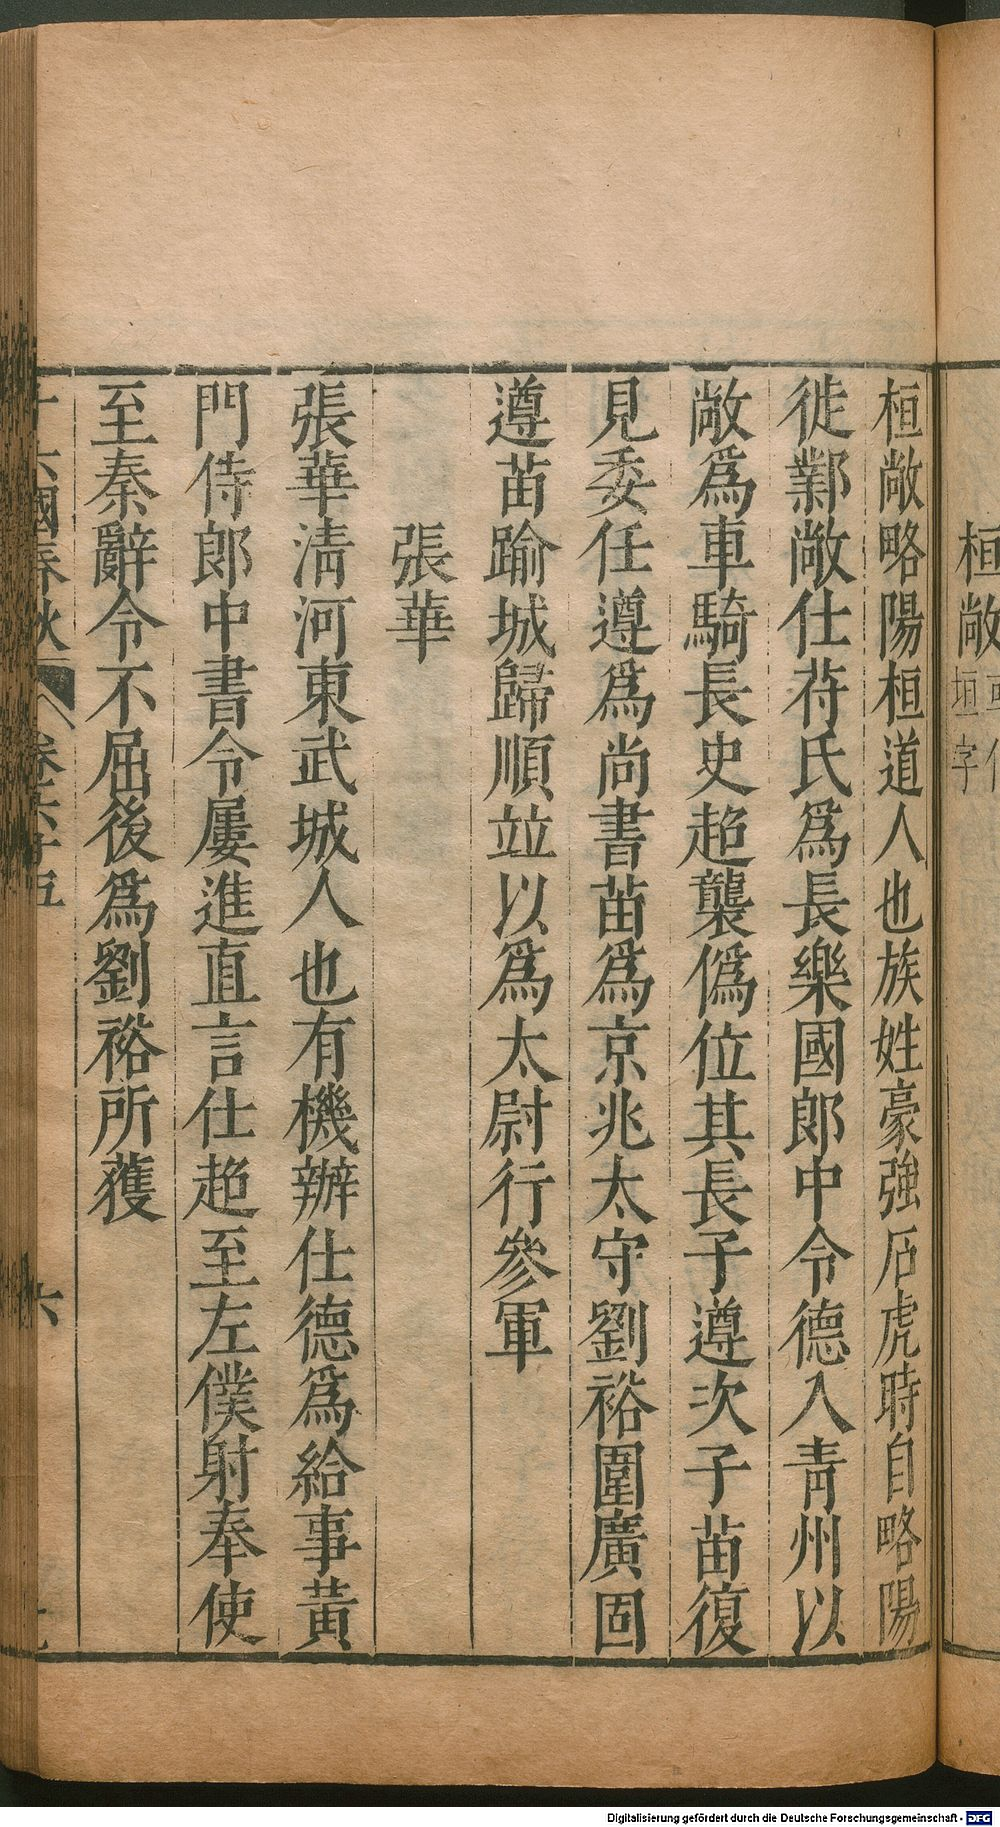 桓敞
垣字
桓敞略陽桓道人也族姓豪強石虎時自略陽
徙鄴敞仕苻氏爲長樂國郎中令德入青州以
敞爲車騎長史超襲僞位其長子遵次子苗復
見委任遵爲尚書苗爲京兆太守劉裕圍廣固
遵苗踰城歸順竝以爲太尉行參軍
張華
張華淸河東武城人也有機辦仕德爲給事黃
門侍郎中書令屢進直言仕超至左僕射奉使
至秦辭令不屈後爲劉裕所獲
十六國春秋 卷六十五 六
Digitalisierung gefördert durch die Deutsche Forschungsgemeinschaft - DFG